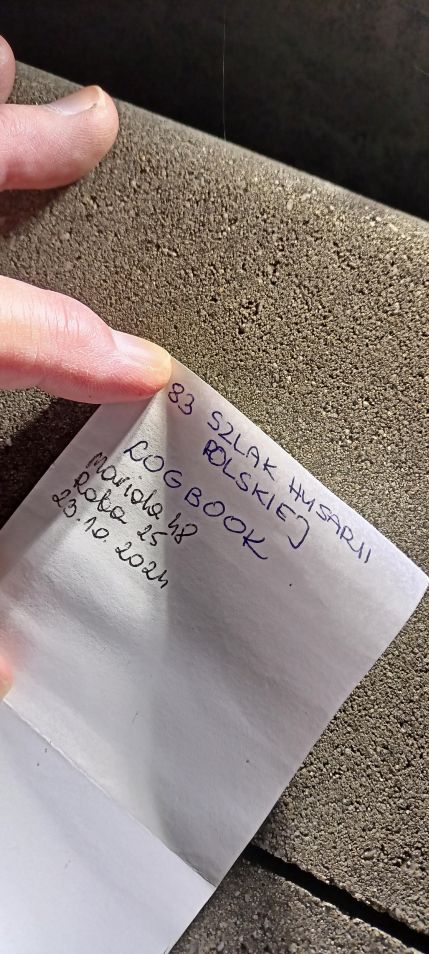 83 SZLAK HUSARII
POLSKIEJ
LOGBOOK
Mariola 48
Roba 25
23.10.2024